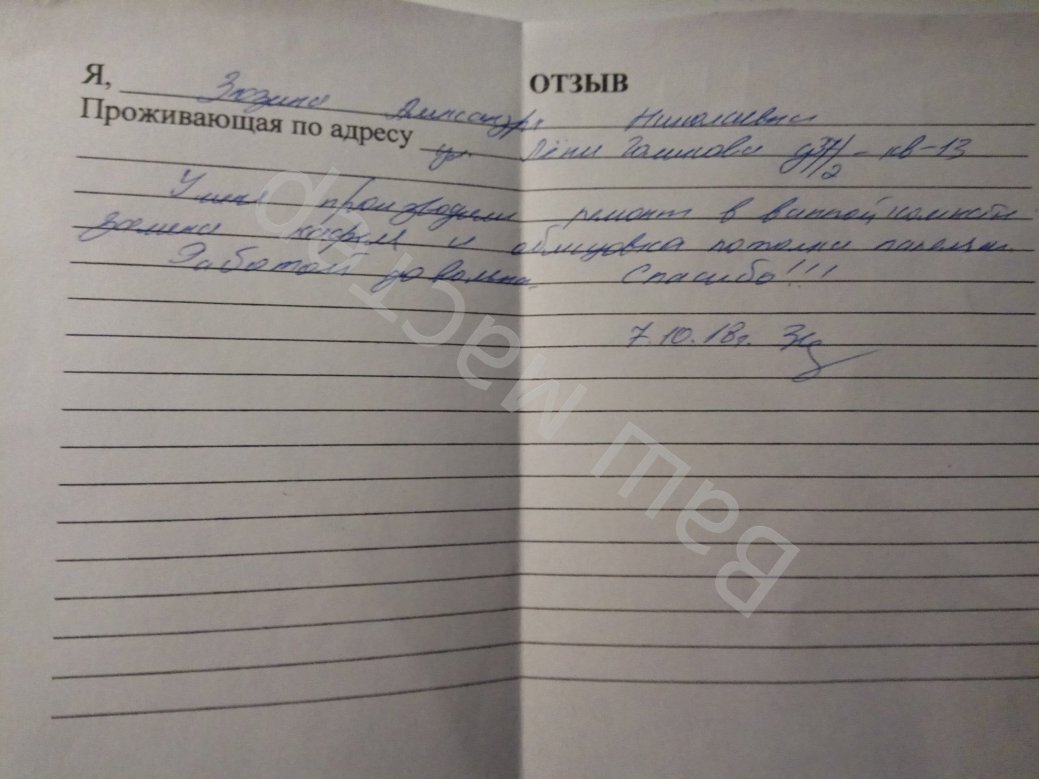 ОТЗЫВ
Я, Зюзина Александра Николаевна
Проживающая по адресу ул. Лёни Голикова д37/2 - кв-13
У меня производили ремонт в ванной комнате
замена кафеля и облицовка потолка панелями
Работой довольна. Спасибо!!!
7.10.18г.
Ваш мастер